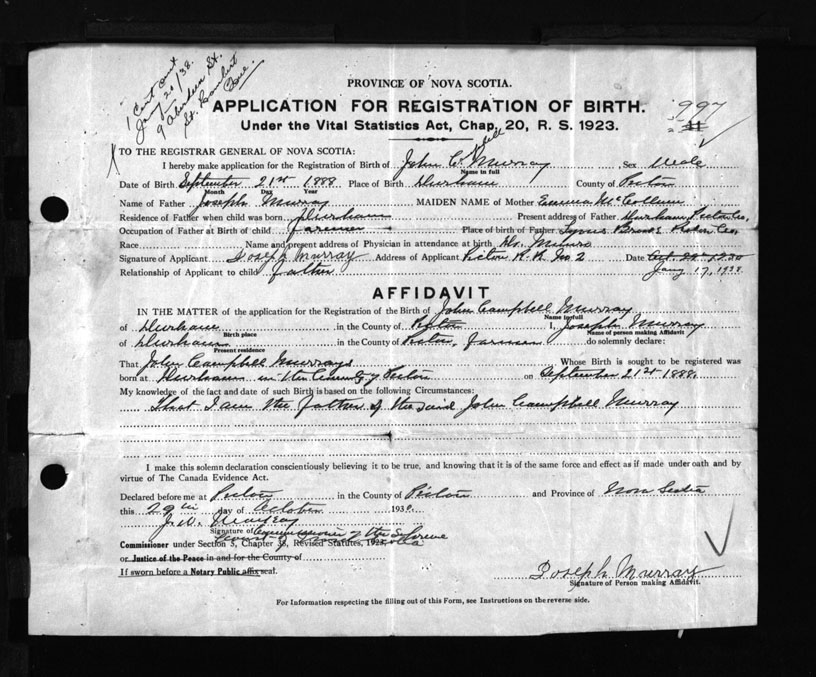 1 Cert out
Jany 20/38.
9 Aberdeen St.
St. Lambert
Que.
PROVINCE OF NOVA SCOTIA.
APPLICATION FOR REGISTRATION OF BIRTH.
997
Under the Vital Statistics Act, Chap. 20, R. S. 1923.
TO THE REGISTRAR GENERAL OF NOVA SCOTIA:
I hereby make application for the Registration of Birth of John C. Murray Sex Male
Name in full
Date of Birth September 21st 1888 Place of Birth Durham County of Pictou
Month Day Year
Name of Father Joseph Murray MAIDEN NAME of Mother Emma McCollum
Residence of Father when child was born Durham Present address of Father Durham Pictou Co.
Occupation of Father at Birth of child farmer Place of birth of Father Lyons Brook Pictou Co.
Race Name and present address of Physician in attendance at birth Dr.
Signature of Applicant Joseph Murray Address of Applicant Pictou R.R. No 2 Date
Relationship of Applicant to child father Jany 17, 1938.
AFFIDAVIT
IN THE MATTER of the application for the Registration of the Birth of John Campbell Murray
Name in full
of Durham in the County of Pictou I, Joseph Murray
Birth place Name of person making Affidavit
of Durham in the County of Pictou, farmer do solemnly declare:
Present residence
That John Campbell Murray Whose Birth is sought to be registered was
born at Durham in the County of Pictou on September 21st 1888.
My knowledge of the fact and date of such Birth is based on the following Circumstances:
that I am the father of the said John Campbell Murray
I make this solemn declaration conscientiously believing it to be true, and knowing that it is of the same force and effect as if made under oath and by
virtue of The Canada Evidence Act.
Declared before me at Pictou in the County of Pictou and Province of Nova Scotia
this 29th day of October 1930.
Signature of Commissioner of the Supreme
Commissioner under Section 3, Chapter 38, Revised Statutes, 1923.
or Justice of the Peace in and for the County of
If sworn before a Notary Public affix seal.
Joseph Murray
Signature of Person making Affidavit.
For Information respecting the filling out of this Form, see Instructions on the reverse side.